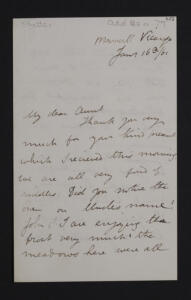 Maxwell Vicarage
Jan 16th/01
My dear Aunt
Thank you very
much for your kind present
which I received this morning
we are all very fond of
riddles. Did you notice the
one on Uncle's name?
John & I are enjoying the
frost very much: the
meadows here were all